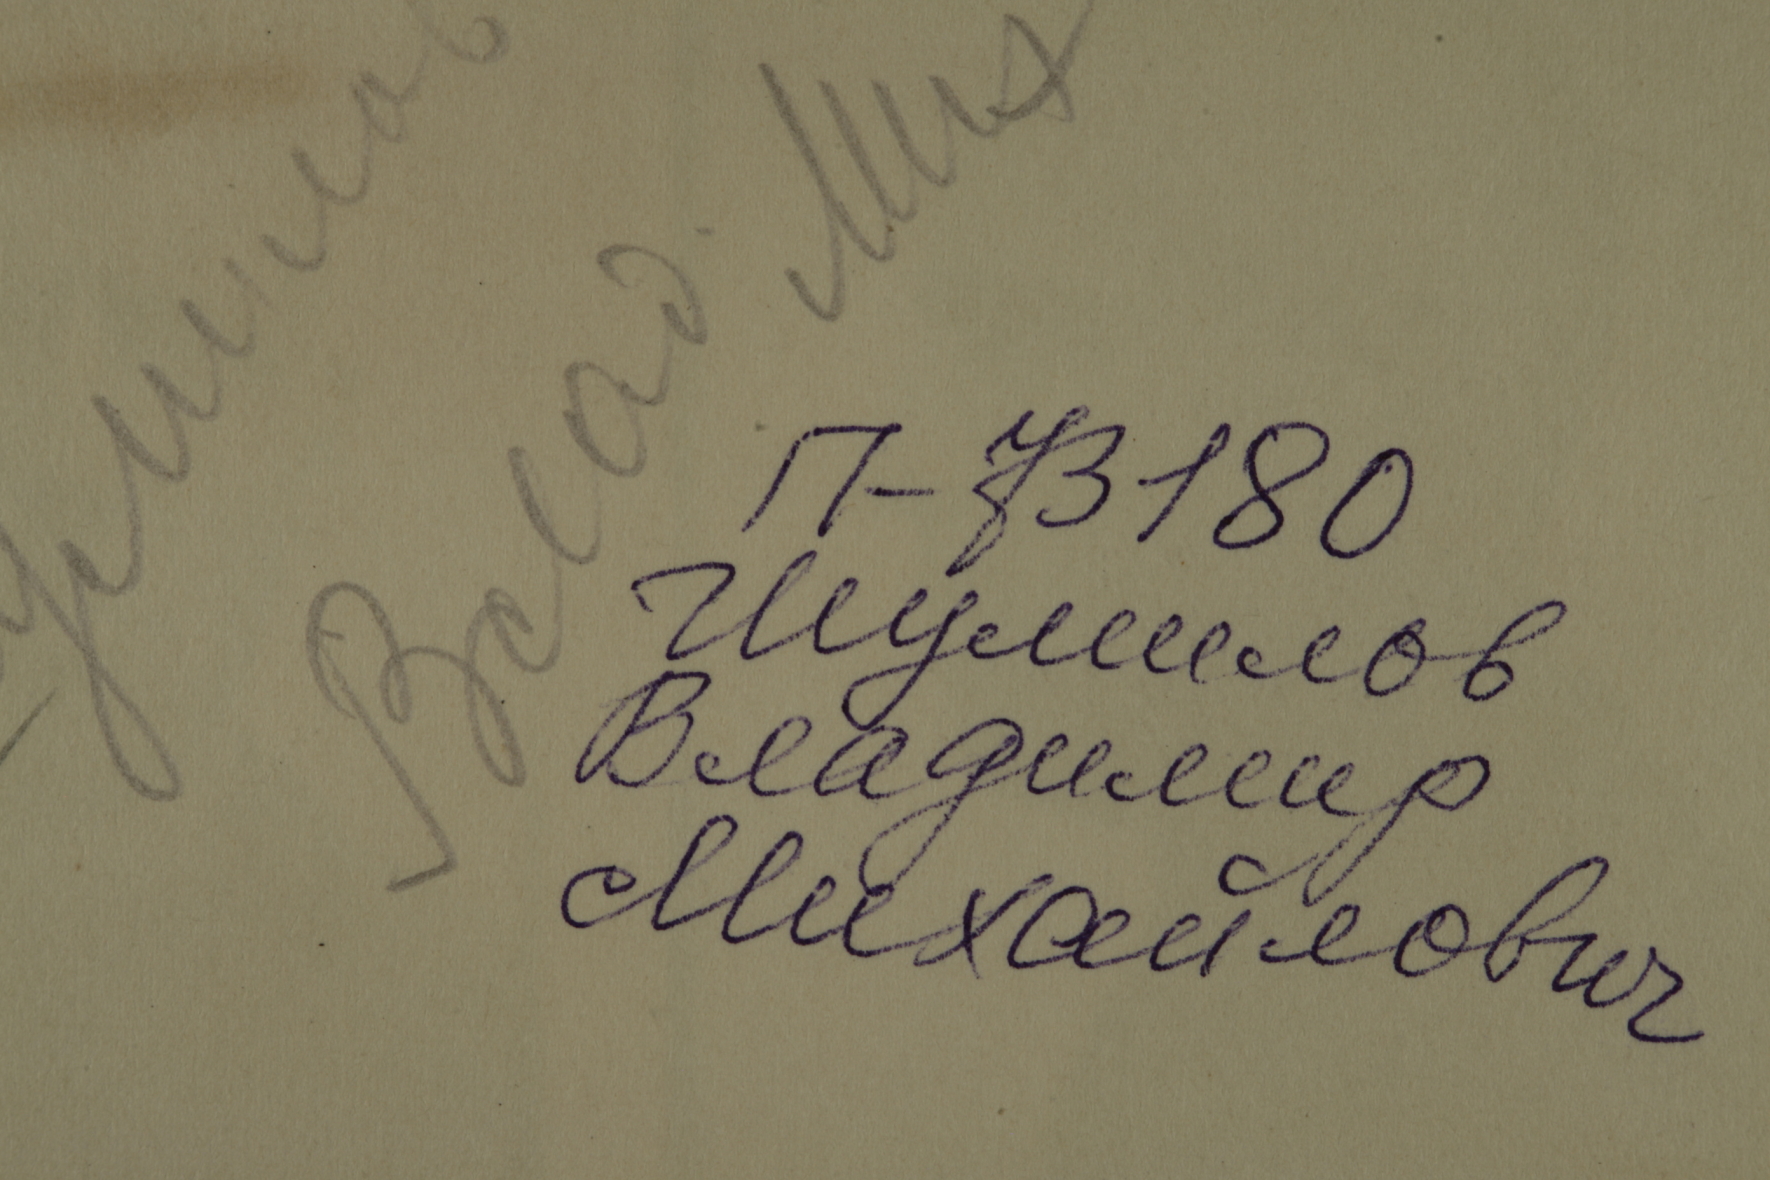 Шумилов
Влад. Мих
П-73180
Шумилов
Владимир
Михайлович